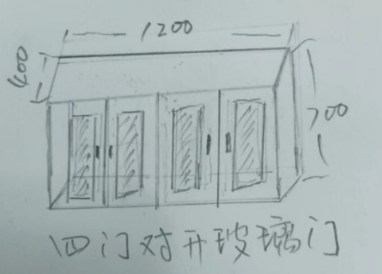 1200
400
700
四门对开玻璃门